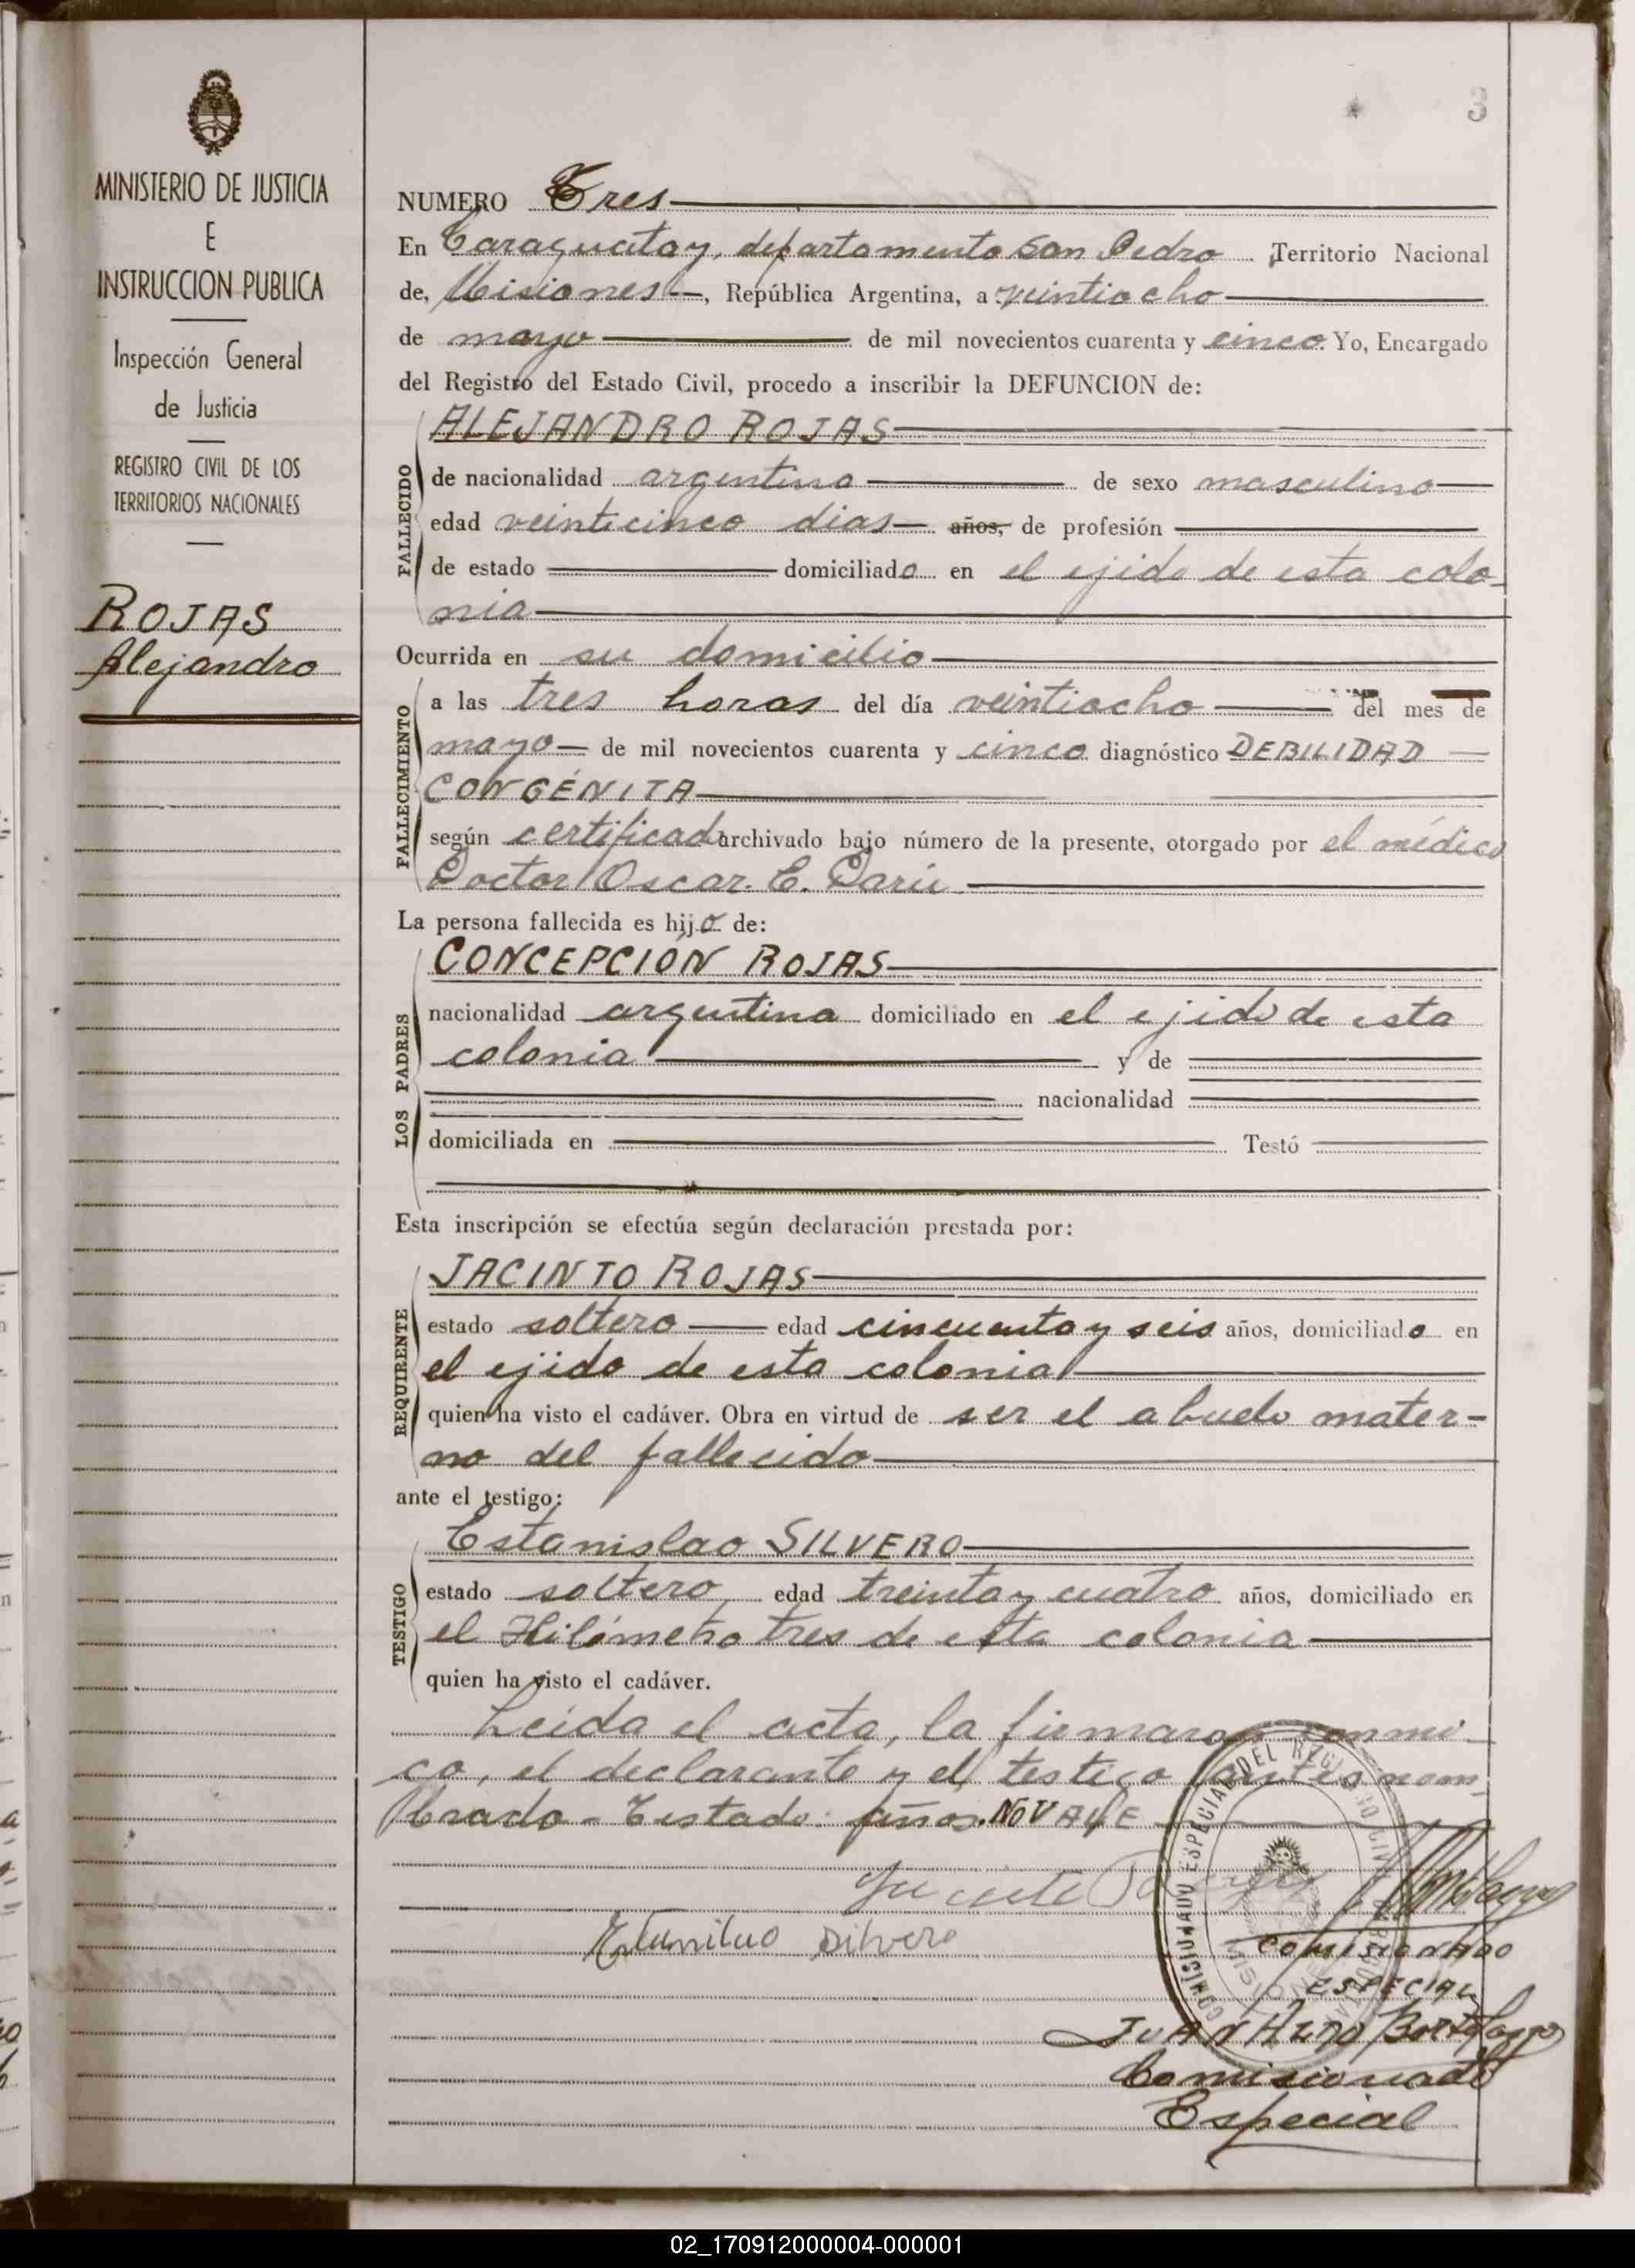 3
MINISTERIO DE JUSTICIA
E
INSTRUCCION PUBLICA
Inspección General
de Justicia
REGISTRO CIVIL DE LOS
TERRITORIOS NACIONALES
ROJAS
Alejandro
NUMERO Tres
En Caraguatay, departamento San Pedro Territorio Nacional
de, Misiones, República Argentina, a veintiocho
de mayo de mil novecientos cuarenta y cinco. Yo, Encargado
del Registro del Estado Civil, procedo a inscribir la DEFUNCION de:
FALLECIDO
ALEJANDRO ROJAS
de nacionalidad argentino de sexo masculino
edad veinticinco dias años, de profesión
de estado domiciliado en el ejido de esta colo-
nia
Ocurrida en su domicilio
FALLECIMIENTO
a las tres horas del día veintiocho del mes de
mayo de mil novecientos cuarenta y cinco diagnóstico DEBILIDAD
CONGÉNITA
según certificado archivado bajo número de la presente, otorgado por el médico
Doctor Oscar. E.
La persona fallecida es hijo de:
LOS PADRES
CONCEPCIÓN ROJAS
nacionalidad argentina domiciliado en el ejido de esta
colonia y de
nacionalidad
domiciliada en Testó
Esta inscripción se efectúa según declaración prestada por:
REQUIRENTE
JACINTO ROJAS
estado soltero edad cincuenta y seis años, domiciliado en
el ejido de esta colonia
quien ha visto el cadáver. Obra en virtud de ser el abuelo mater-
no del fallecido
ante el testigo:
TESTIGO
Estanislao SILVERO
estado soltero edad treinta y cuatro años, domiciliado en
el Kilómetro tres de esta colonia
quien ha visto el cadáver.
Leída el acta, la firmaron conmi-
go, el declarante y el testigo antes nom-
brado - Testado: años. NO VALE
Silvero
COMISIONADO
ESPECIAL
JUAN
Comisionado
Especial
COMISIONADO ESPECIAL DEL REGISTRO CIVIL
02_170912000004-000001